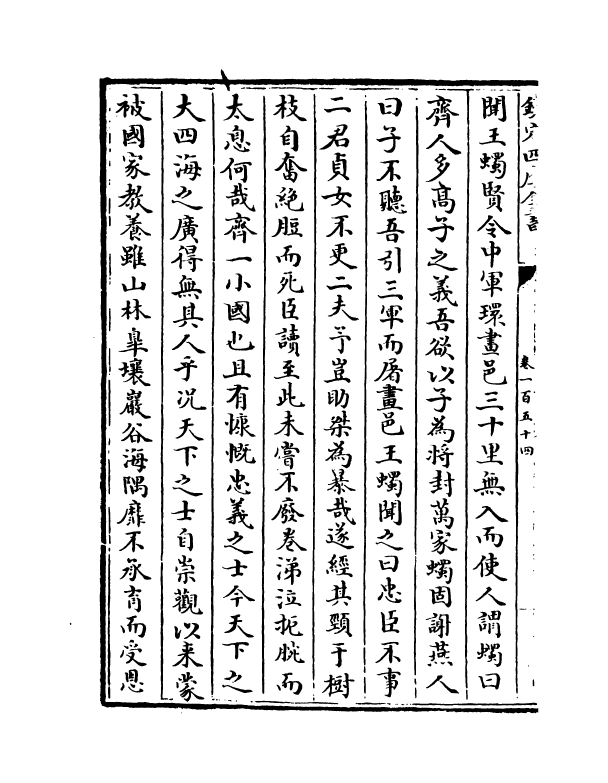 欽定四庫全書
卷一百五十四
聞王蠋賢令中軍環畫邑三十里無入而使人謂蠋曰
齊人多髙子之義吾欲以子為將封萬家蠋固謝燕人
曰子不聽吾引三軍而屠畫邑王蠋聞之曰忠臣不事
二君貞女不更二夫予豈助桀為暴哉遂經其頸于樹
枝自奮絶脰而死臣讀至此未嘗不廢巻涕泣扼腕而
太息何哉齊一小國也且有慷慨忠義之士今天下之
大四海之廣得無具人乎况天下之士自崇觀以来蒙
被國家教養雖山林臯壤巖谷海隅靡不承育而受恩